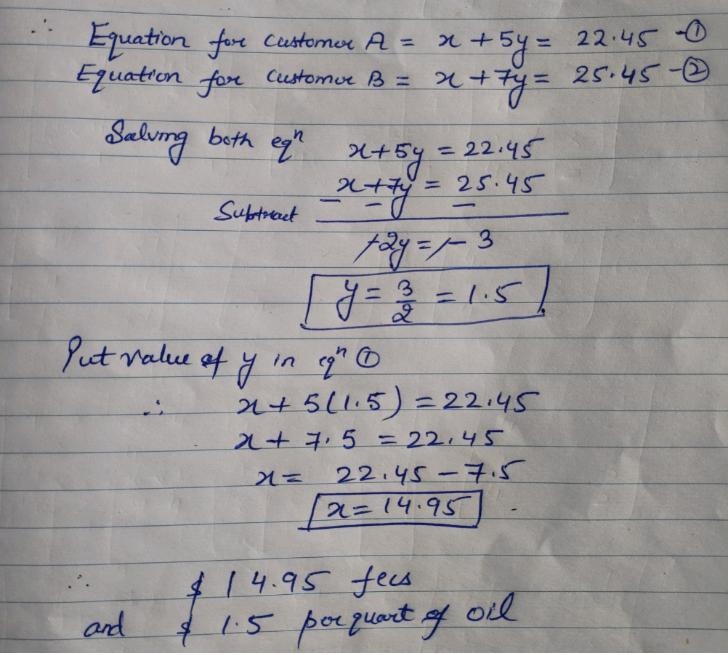 ∴ Equation for customer A = x + 5y = 22.45 -①
Equation for customer B = x + 7y = 25.45 -②
Solving both eqⁿ x + 5y = 22.45
x + 7y = 25.45
Subtract - - -
-2y = - 3
y = 3/2 = 1.5
Put value of y in eqⁿ ①
∴ x + 5(1.5) = 22.45
x + 7.5 = 22.45
x = 22.45 - 7.5
x = 14.95
∴ $ 14.95 fees
and $ 1.5 per quart of oil